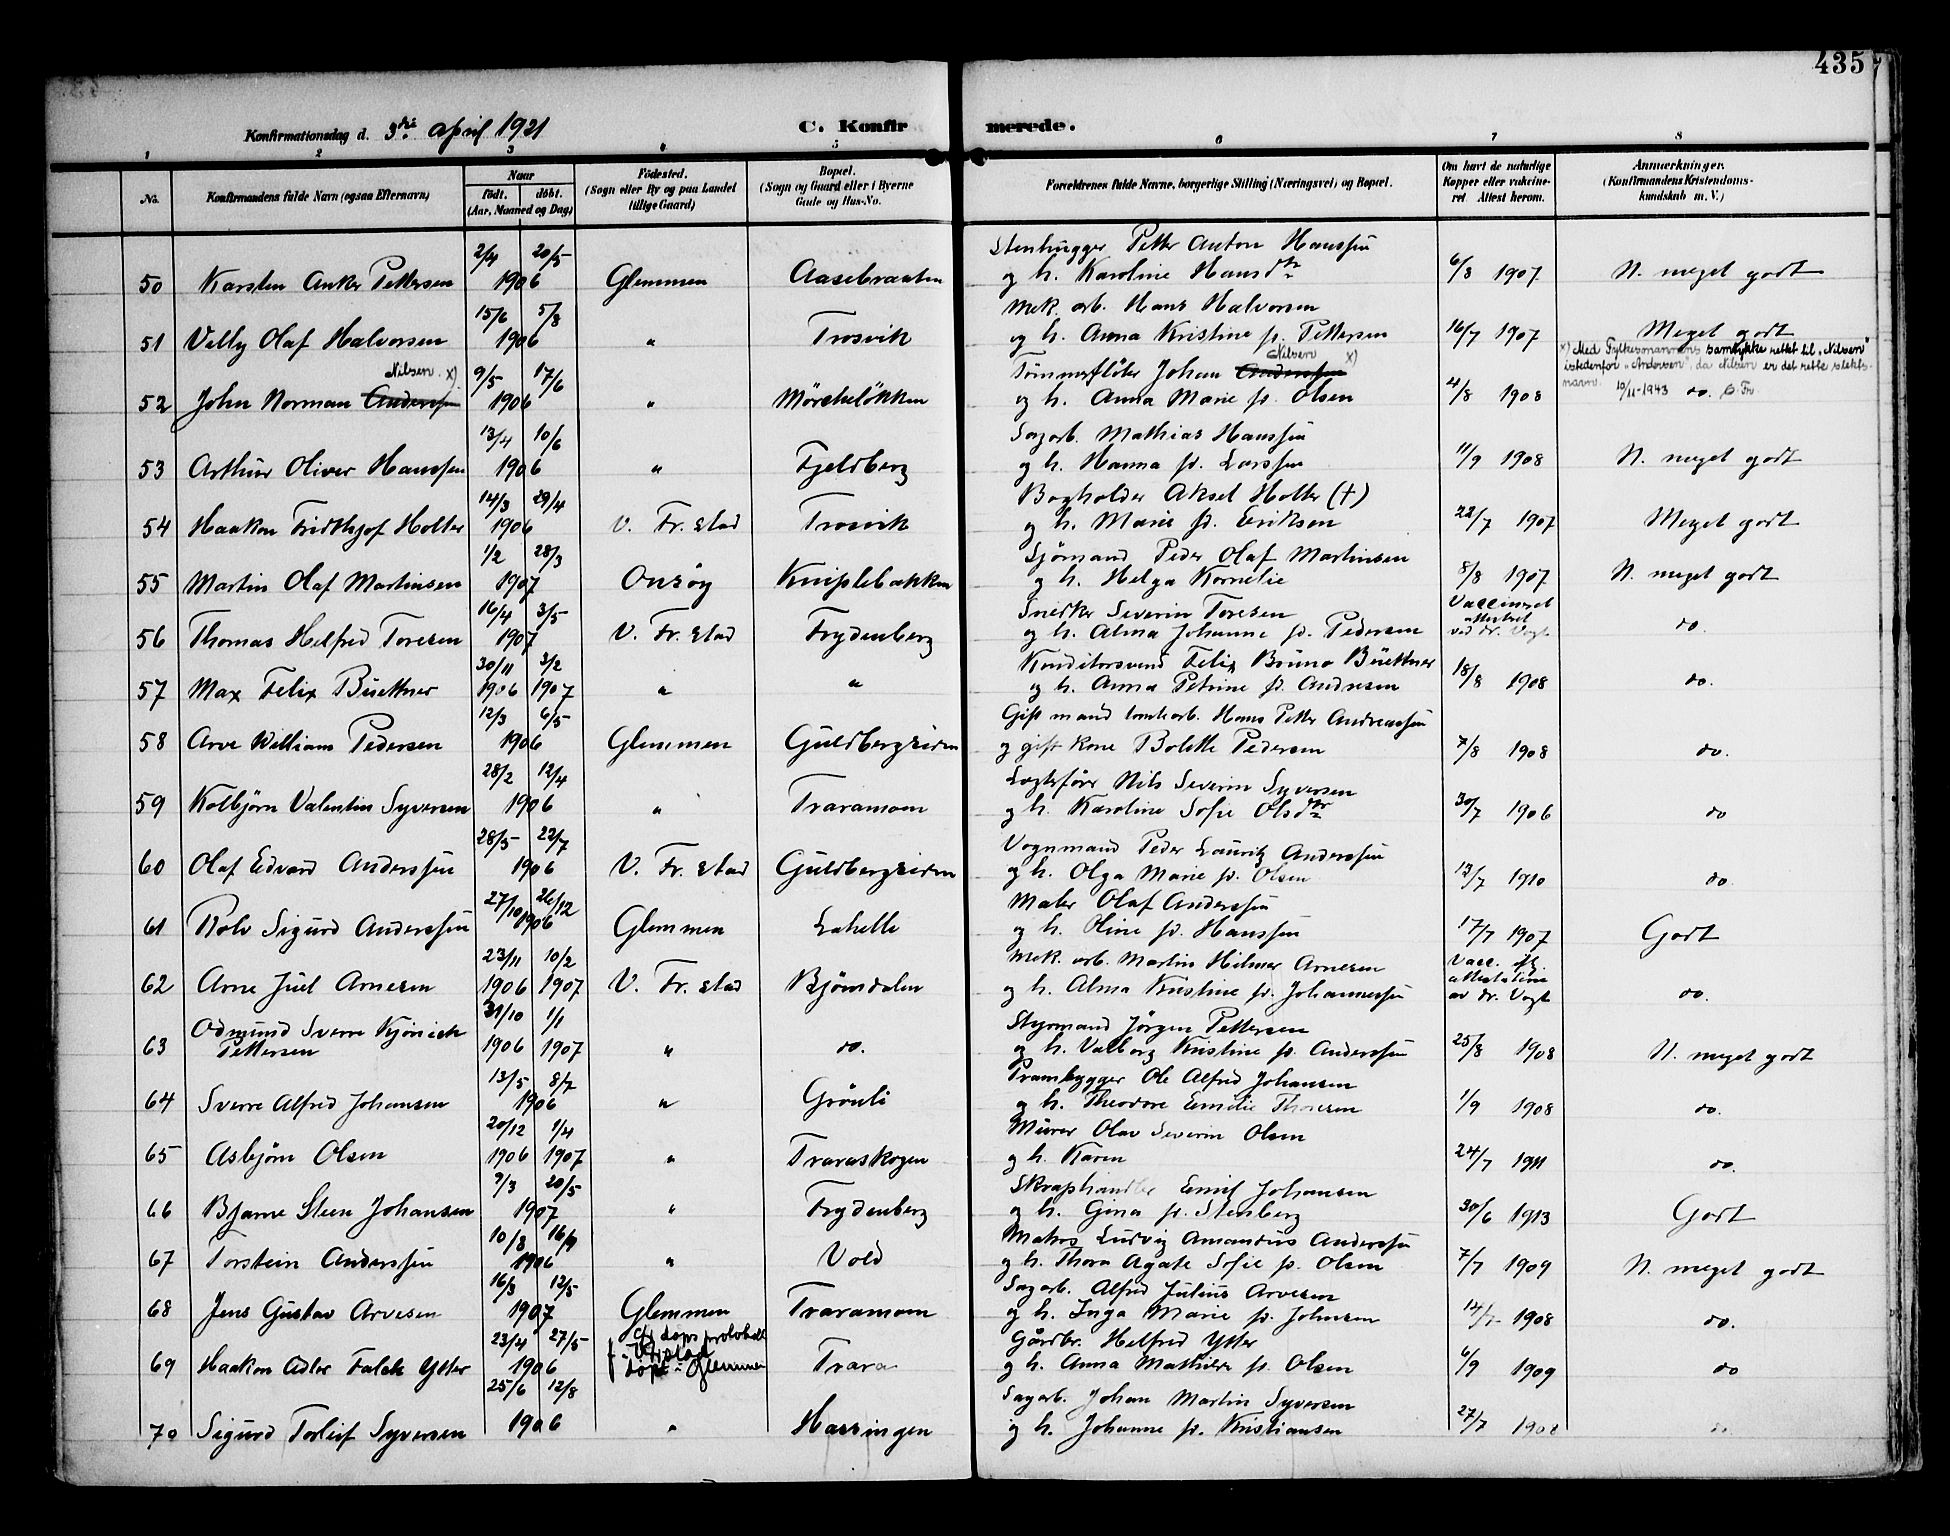 435
Konfirmationsdag d. 3die april 1921 C. Konfirmerede.
1 2 3 4 5 6 7 8
No. Konfirmandens fulde Navn (ogsaa Efternavn) Naar født. døbt. (Aar, Maaned og Dag) Fødested. (Sogn eller By og paa Landet tillige Gaard) Bopæl. (Sogn og Gaard eller i Byerne Gade og Hus-No. Forældrenes fulde Navne, borgerlige Stilling (Næringsvei) og Bopæl. Om havt de naturlige Kopper eller vakcineret. Attest herom. Anmærkninger. (Konfirmandens Kristendomskundskab m. V.)
2/4 20/5 Stenhugger Petter Anton Hanssen
50 Karsten Anker Pettersen 1906 Glemmen Aasebraaten og h. Karoline Hansdtr 6/8 1907 N. meget godt
15/6 5/8 Mek. arb. Hans Halvorsen
51 Villy Olaf Halvorsen 1906 " Trosvik og h. Anna Kristine f. Pettersen 16/7 1907 Meget godt
Nilsen x) 9/5 17/6 Tømmerfløter Johan Anderssen Nilsen x) x) Med Fylkesmannens samtykke rettet til "Nilsen" istedenfor "Andersen", da Nilsen er det rette slektsnavn.
52 John Norman Anderssen 1906 " Mørcheløkken og h. Anna Marie f. Olsen 4/8 1908 10/11-1943 do.
13/4 10/6 Sagarb. Mathias Hanssen
53 Arthur Oliver Hanssen 1906 " Fjeldberg og h. Hanna f. Larssen 11/9 1908 N. meget godt
14/3 29/4 Bogholder Aksel Holter (†)
54 Haakon Fridthjof Holter 1906 V. Fr.stad Trosvik og h. Marie f. Eriksen 22/7 1907 Meget godt
1/2 28/3 Sjømand Peder Olaf Martinsen
55 Martin Olaf Martinsen 1907 Onsøy Kniplebakken og h. Helga Kornelie 8/8 1907 N. meget godt
16/4 3/5 Snedker Severin Toresen Vaccinert
56 Thomas Helfred Toresen 1907 V. Fr.stad Frydenberg og h. Alma Johanne f. Pedersen attestert ved dr. Vogt do.
30/11 3/2 Konditorsvend Felix Bruno Büettner
57 Max Felix Büettner 1906 1907 " " og h. Anna Petrine f. Andresen 18/8 1908 do.
12/3 6/5 Gift mand tomtearb. Hans Petter Andreassen
58 Arve William Pedersen 1906 Glemmen Guldbergsiden og gift kone Bolette Pedersen 7/8 1908 do.
28/2 12/4 Lægtefører Nils Severin Syversen
59 Kolbjørn Valentin Syversen 1906 " Traramoen og h. Karoline Sofie Olsdtr 30/7 1906 do
28/5 22/7 Vognmand Peder Lauritz Anderssen
60 Olaf Edvard Anderssen 1906 V. Fr.stad Guldbergsiden og h. Olga Marie f. Olsen 13/7 1910 do.
27/10 26/12 Maler Olaf Anderssen
61 Rolv Sigurd Anderssen 1906 Glemmen Lahelle og h. Oline f. Hanssen 17/7 1907 Godt
23/11 10/2 Mek. arb. Martin Hilmer Arnesen Vacc. iflg.
62 Arne Juel Arnesen 1906 1907 V. Fr.stad Bjørndalen og h. Alma Kristine f. Johannessen attestation av dr. Vogt do.
Odmund Sverre Kjønick 31/10 1/1 Styrmand Jørgen Pettersen
63 Pettersen 1906 1907 " do. og h. Valborg Kristine f. Anderssen 25/8 1908 N. meget godt
13/5 8/7 Prambygger Ole Alfred Johansen
64 Sverre Alfred Johansen 1906 " Grønli og h. Theodore Emilie Thoresen 1/9 1908 do.
20/12 1/4 Murer Olav Severin Olsen
65 Asbjørn Olsen 1906 1907 " Traraskogen og h. Karen 24/7 1911 do.
9/3 20/5 Skraphandler Emil Johansen
66 Bjarne Steen Johansen 1907 " Frydenberg og h. Gina f. Stenberg 30/6 1913 Godt
10/8 16/9 Matros Ludvig Amandus Anderssen
67 Torstein Anderssen 1906 " Vold og h. Thora Agate Sofie f. Olsen 7/7 1909 N. meget godt
16/3 12/5 Sagarb. Alfred Julius Arvesen
68 Jens Gustav Arvesen 1907 Glemmen Traramoen og h. Inga Marie f. Johnsen 14/7 1908 do.
23/4 27/5 cfr dops protokoll Gårdbr. Helfred Ytter
69 Haakon Adler Falck Ytter 1906 f. i V.Fr.stad døpt i Glemmen Trara og h. Anna Mathilde f. Olsen 6/9 1909 do
25/6 12/8 Sagarb. Johan Martin Syversen
70 Sigurd Torleif Syversen 1906 " Hassingen og h. Johanne f. Kristiansen 27/7 1908 do.